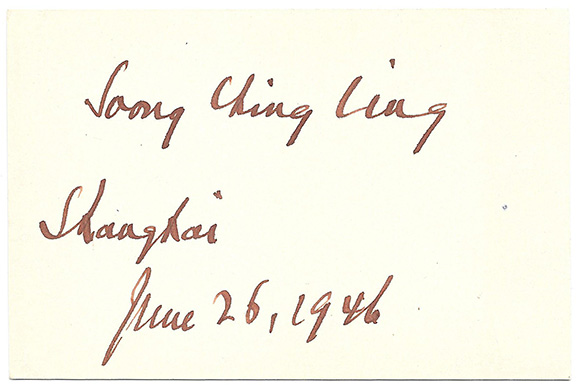 Soong Ching Ling
Shanghai
June 26, 1946